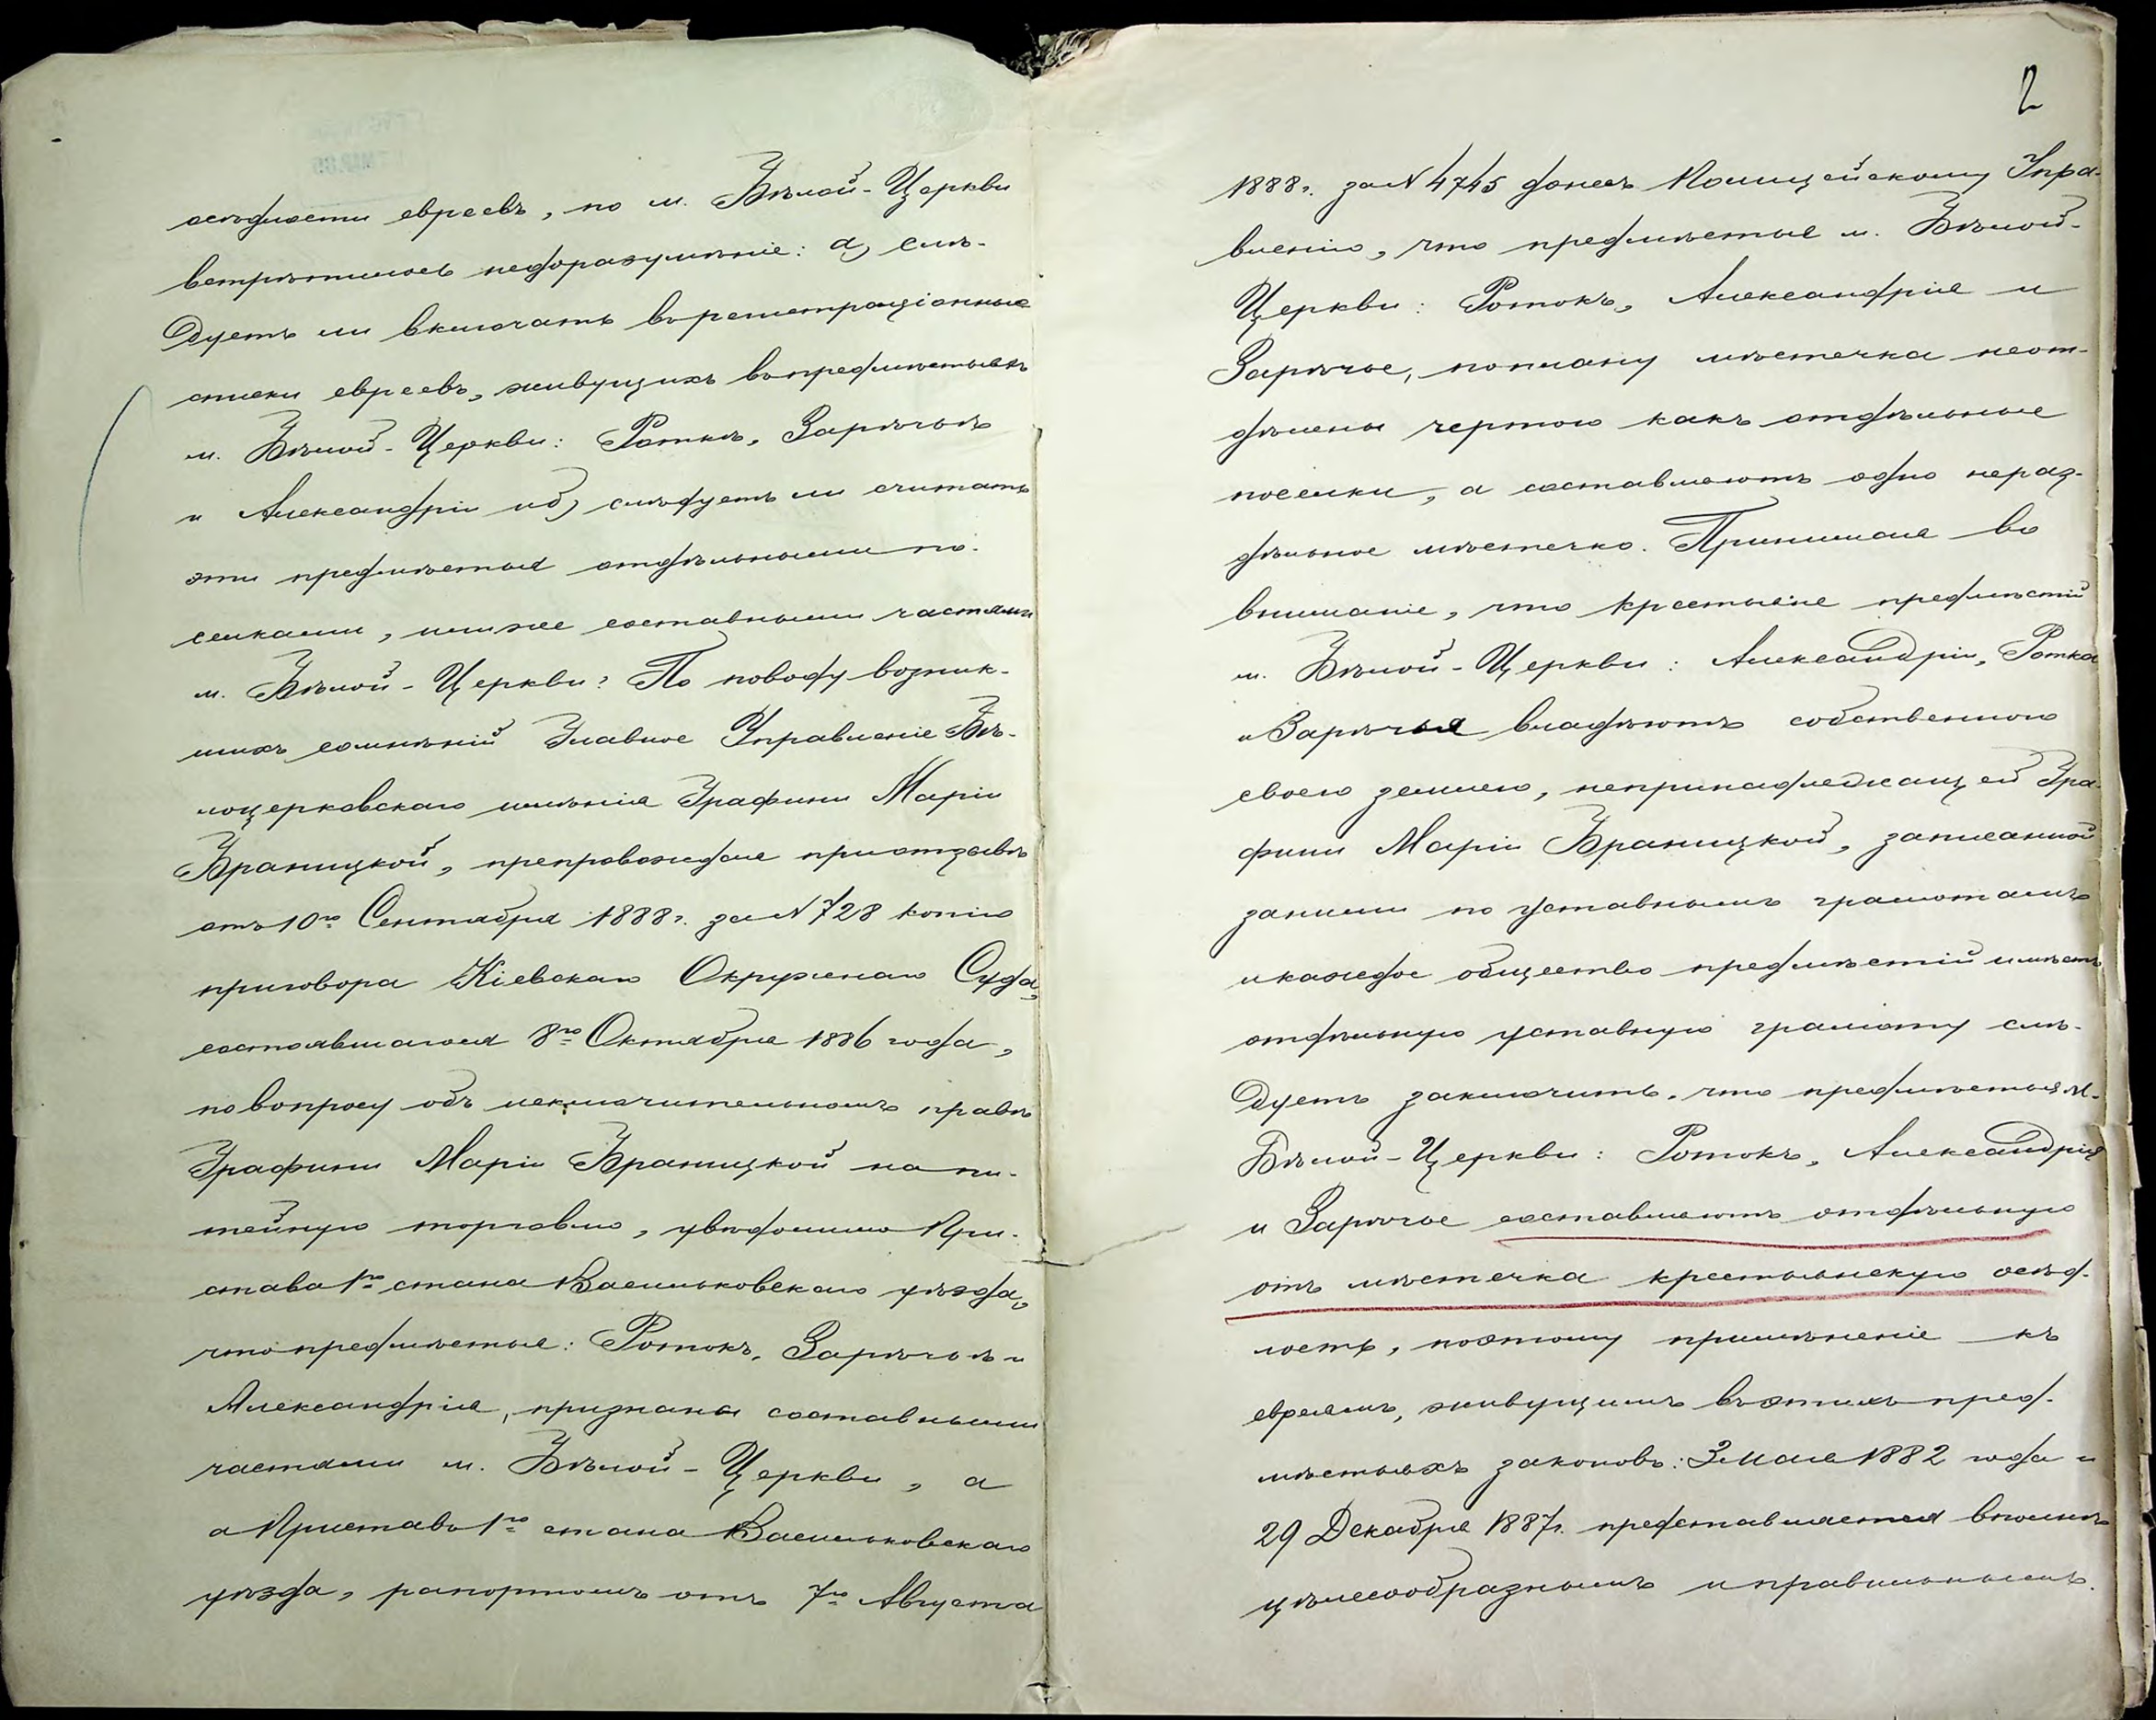 осѣдлости евреевъ, по м. Бѣлой-Церкви
встрѣтилось недоразумѣніе: а) слѣ-
дуетъ ли включать въ регистраціонные
списки евреевъ, живущихъ въ предмѣстьяхъ
м. Бѣлой-Церкви: Роткѣ, Зарѣчьѣ
и Александріи и б) слѣдуетъ ли считать
эти предмѣстья отдѣльными по-
селками, или же составными частями
м. Бѣлой-Церкви? По поводу возник-
шихъ сомнѣній Главное Управленіе Бѣ-
лоцерковскаго имѣнія Графини Маріи
Браницкой, препровождая при отзывѣ
отъ 10го Сентября 1888 г. за N 728 копію
приговора Кіевскаго Окружнаго Суда,
состоявшагося 8го Октября 1886 года,
по вопросу объ исключительномъ правѣ
Графини Маріи Браницкой на пи-
тейную торговлю, увѣдомило При-
става 1го стана Васильковскаго уѣзда,
что предмѣстья: Ротокъ, Зарѣчье и
Александрія, признаны составными
частями м. Бѣлой-Церкви, а
а Приставъ 1го стана Васильковскаго
уѣзда, рапортомъ отъ 7го Августа
2
1888 г. за N 4745 донесъ Полицейскому Упра-
вленію, что предмѣстья м. Бѣлой-
Церкви: Ротокъ, Александрія и
Зарѣчье, по плану мѣстечка неот-
дѣлены чертою какъ отдѣльные
поселки, а составляютъ одно нераз-
дѣльное мѣстечко. Принимая во
вниманіе, что крестьяне предмѣстій
м. Бѣлой-Церкви: Александріи, Ротка
и Зарѣчья владѣютъ собственною
своею землею, непринадлежащей Гра-
фини Маріи Браницкой, записанной
за ними по уставнымъ грамотамъ
и каждое общество предмѣстій имѣетъ
отдѣльную уставную грамоту слѣ-
дуетъ заключить, что предмѣстья м.
Бѣлой-Церкви: Ротокъ, Александрія
и Зарѣчье составляютъ отдѣльную
отъ мѣстечка крестьянскую осѣд-
лость, поэтому примѣненіе къ
евреямъ, живущимъ въ этихъ пред-
мѣстьяхъ законовъ: 3 Мая 1882 года и
29 Декабря 1887 г. представляется вполнѣ
цѣлесообразнымъ и правильнымъ.